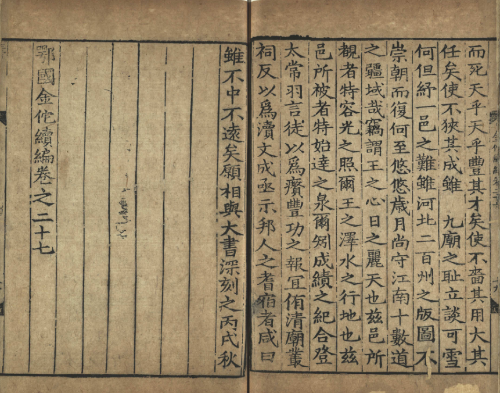 而死天乎天乎豐其才矣使不嗇其用大其
任矣使不狹其成雖　九廟之恥立談可雪
何但紓一邑之難雖河北二百州之版圖不
崇朝而復何至悠悠歲月尚守江南十數道
之疆域哉竊謂王之心日之麗天也兹邑所
覩者特容光之照爾王之澤水之行地也兹
邑所被者特始達之泉爾矧成績之紀合登
太常羽言徒以爲贅豐功之報宜侑清廟叢
祠反以爲瀆文成亟示邦人之耆宿者咸曰
雖不中不遠矣願相與大書深刻之丙戌秋
鄂國金佗續編卷之二十七